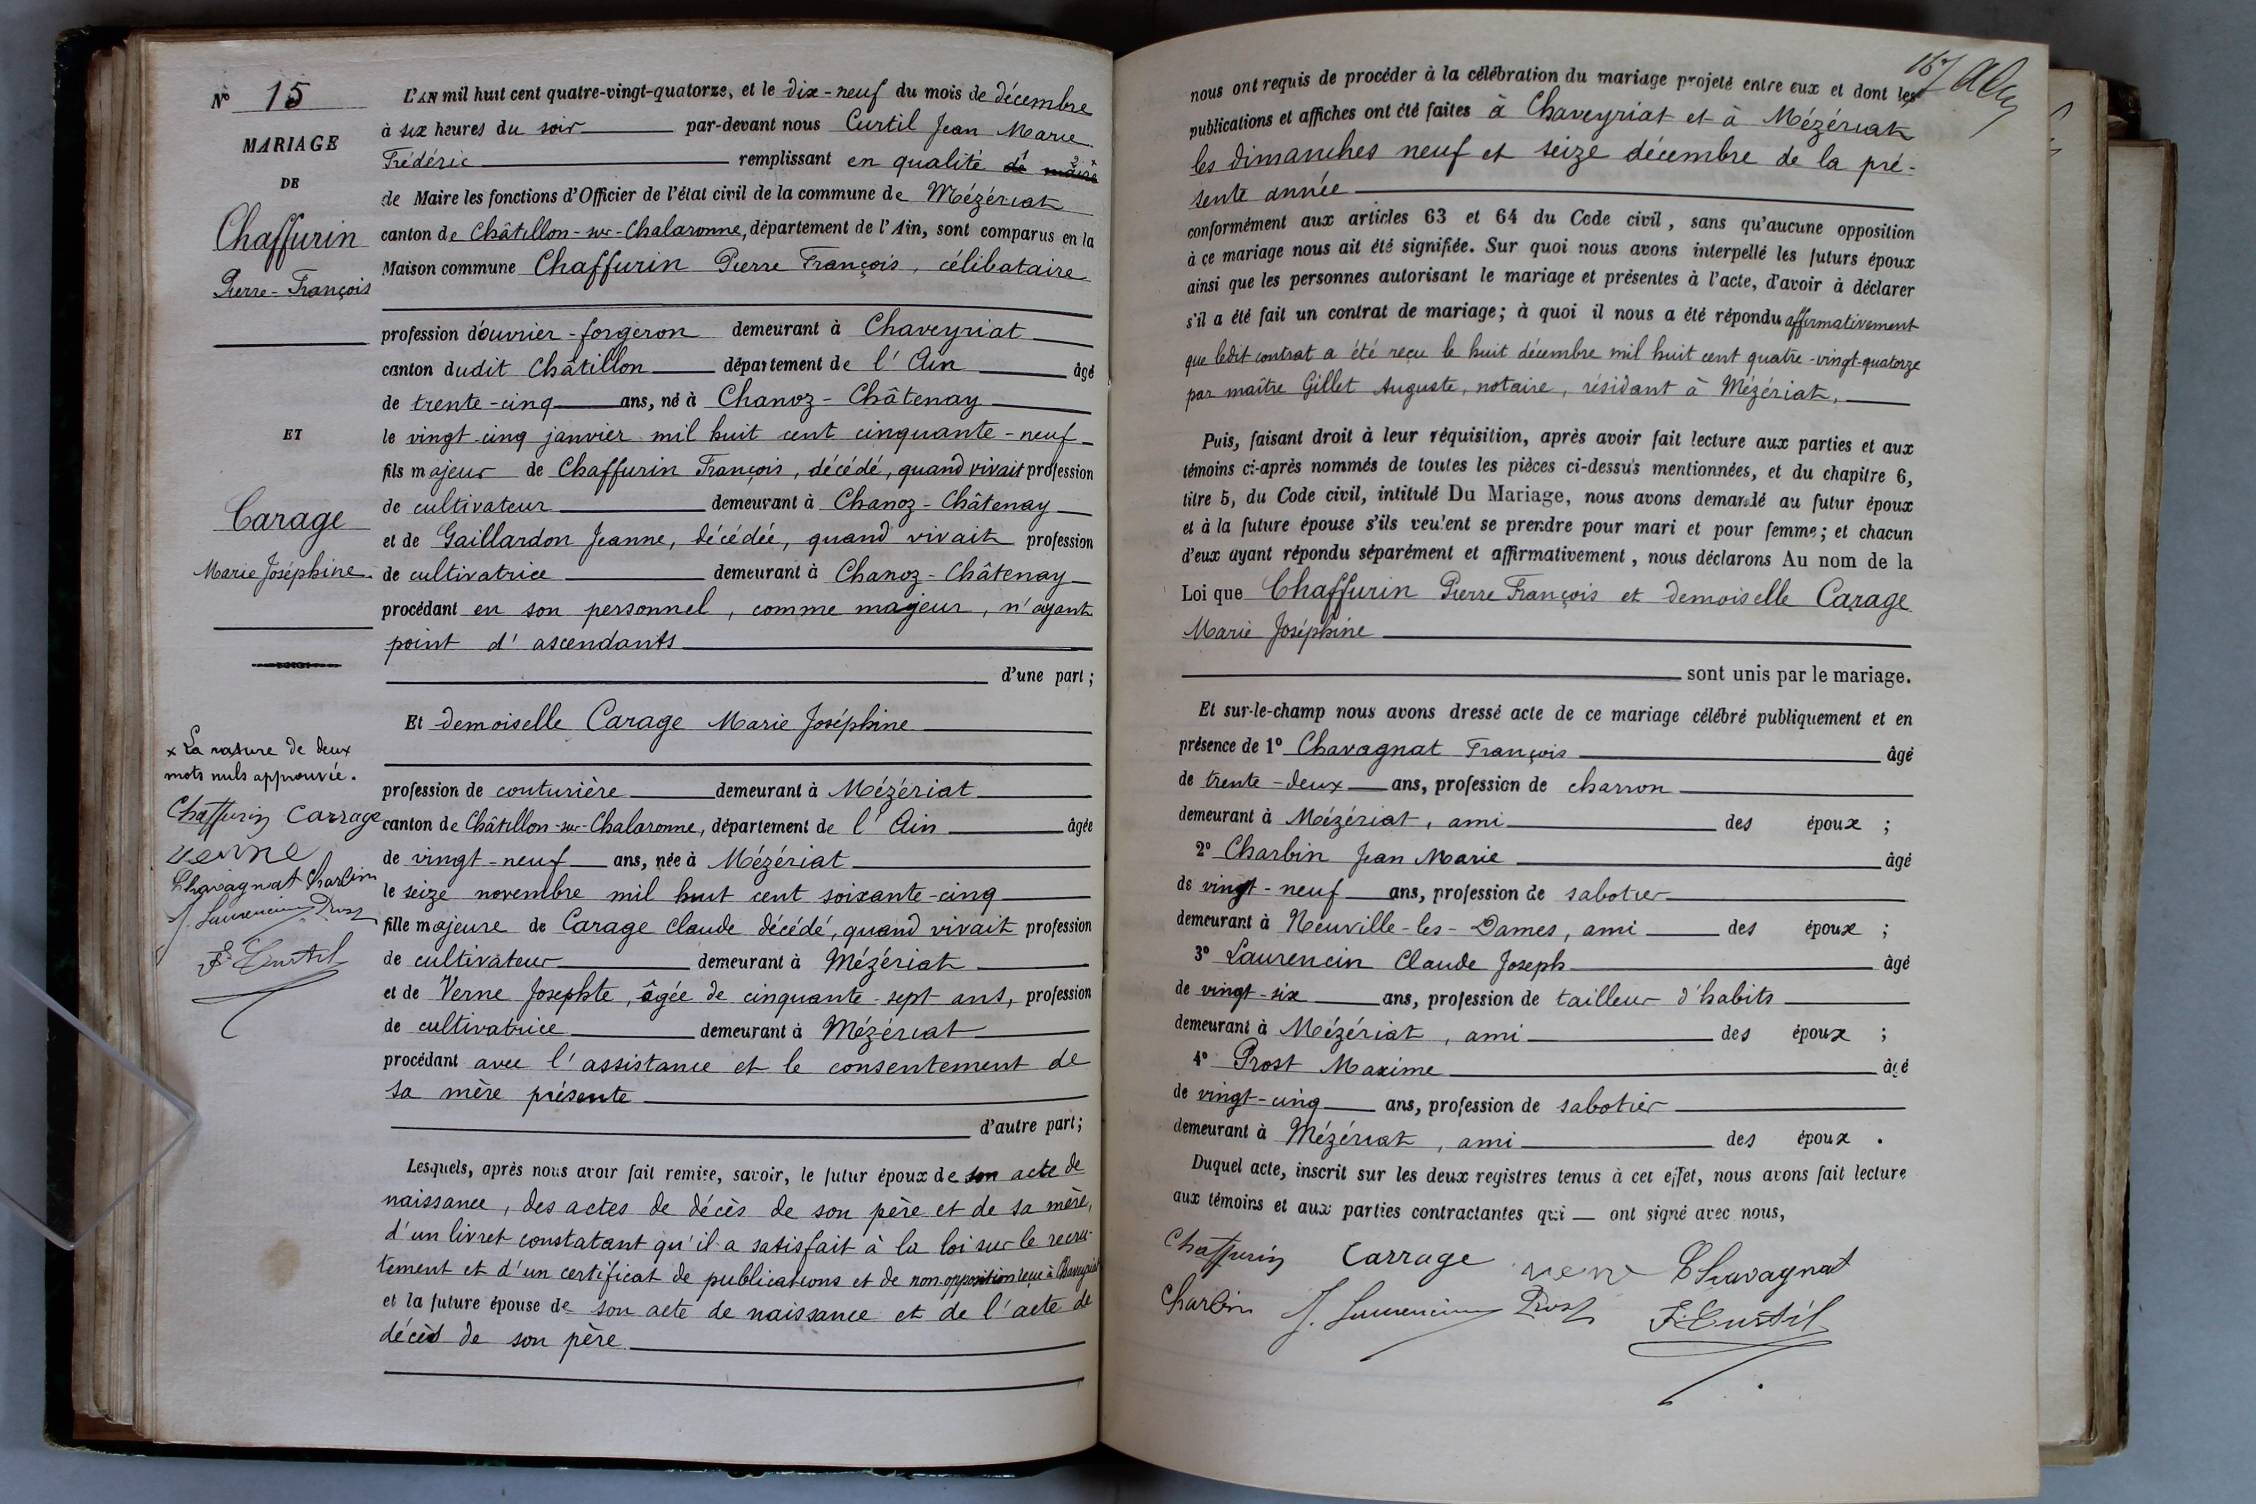 N° 15
MARIAGE
DE
Chaffurin
Pierre-François
ET
Carage
Marie Joséphine.
x La rature de deux
mots nuls approuvée.
Chaffurin Carrage
verne
Chavagnat Charbin
J. Laurencin Prost
F. Curtil
L'AN mil huit cent quatre-vingt-quatorze, et le dix-neuf du mois de décembre
à six heures du soir par-devant nous Curtil Jean Marie
Frédéric remplissant en qualité de maire
de Maire les fonctions d'Officier de l'état civil de la commune de Mézériat
canton de Châtillon-sur-Chalaronne, département de l'Ain, sont comparus en la
Maison commune Chaffurin Pierre François, célibataire
profession d'ouvrier-forgeron demeurant à Chaveyriat
canton dudit Châtillon département de l'Ain âgé
de trente-cinq ans, né à Chanoz-Châtenay
le vingt-cinq janvier mil huit cent cinquante-neuf
fils majeur de Chaffurin François, décédé, quand vivait profession
de cultivateur demeurant à Chanoz-Châtenay
et de Gaillardon Jeanne, décédée, quand vivait profession
de cultivatrice demeurant à Chanoz-Châtenay
procédant en son personnel, comme majeur, n'ayant
point d'ascendants
d'une part;
Et demoiselle Carage Marie Joséphine
profession de couturière demeurant à Mézériat
canton de Châtillon-sur-Chalaronne, département de l'Ain âgée
de vingt-neuf ans, née à Mézériat
le seize novembre mil huit cent soixante-cinq
fille majeure de Carage Claude décédé, quand vivait profession
de cultivateur demeurant à Mézériat
et de Verne Josephte, âgée de cinquante-sept ans, profession
de cultivatrice demeurant à Mézériat
procédant avec l'assistance et le consentement de
sa mère présente
d'autre part;
Lesquels, après nous avoir fait remise, savoir, le futur époux de son acte de
naissance, des actes de décès de son père et de sa mère,
d'un livret constatant qu'il a satisfait à la loi sur le recru-
tement et d'un certificat de publications et de non-opposition reçue à Chaveyriat
et la future épouse de son acte de naissance et de l'acte de
décès de son père
167
nous ont requis de procéder à la célébration du mariage projeté entre eux et dont les
publications et affiches ont été faites à Chaveyriat et à Mézériat
les dimanches neuf et seize décembre de la pré-
sente année
conformément aux articles 63 et 64 du Code civil, sans qu'aucune opposition
à ce mariage nous ait été signifiée. Sur quoi nous avons interpellé les futurs époux
ainsi que les personnes autorisant le mariage et présentes à l'acte, d'avoir à déclarer
s'il a été fait un contrat de mariage; à quoi il nous a été répondu affirmativement
que ledit contrat a été reçu le huit décembre mil huit cent quatre-vingt-quatorze
par maître Gillet Auguste, notaire, résidant à Mézériat,
Puis, faisant droit à leur réquisition, après avoir fait lecture aux parties et aux
témoins ci-après nommés de toutes les pièces ci-dessus mentionnées, et du chapitre 6,
titre 5, du Code civil, intitulé Du Mariage, nous avons demandé au futur époux
et à la future épouse s'ils veulent se prendre pour mari et pour femme; et chacun
d'eux ayant répondu séparément et affirmativement, nous déclarons Au nom de la
Loi que Chaffurin Pierre François et demoiselle Carage
Marie Joséphine
sont unis par le mariage.
Et sur-le-champ nous avons dressé acte de ce mariage célébré publiquement et en
présence de 1° Chavagnat François âgé
de trente-deux ans, profession de charron
demeurant à Mézériat, ami des époux ;
2° Charbin Jean Marie âgé
de vingt-neuf ans, profession de sabotier
demeurant à Neuville-les-Dames, ami des époux ;
3° Laurencin Claude Joseph âgé
de vingt-six ans, profession de tailleur d'habits
demeurant à Mézériat, ami des époux ;
4° Prost Maxime âgé
de vingt-cinq ans, profession de sabotier
demeurant à Mézériat, ami des époux .
Duquel acte, inscrit sur les deux registres tenus à cet effet, nous avons fait lecture
aux témoins et aux parties contractantes qui — ont signé avec nous,
Chaffurin Carrage verne Chavagnat
Charbin J. Laurencin Prost F. Curtil